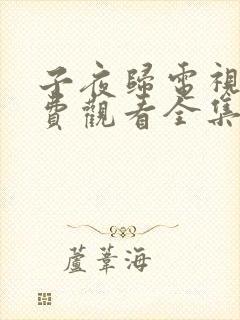 子夜歸電視
費觀看全集
蘆葦海